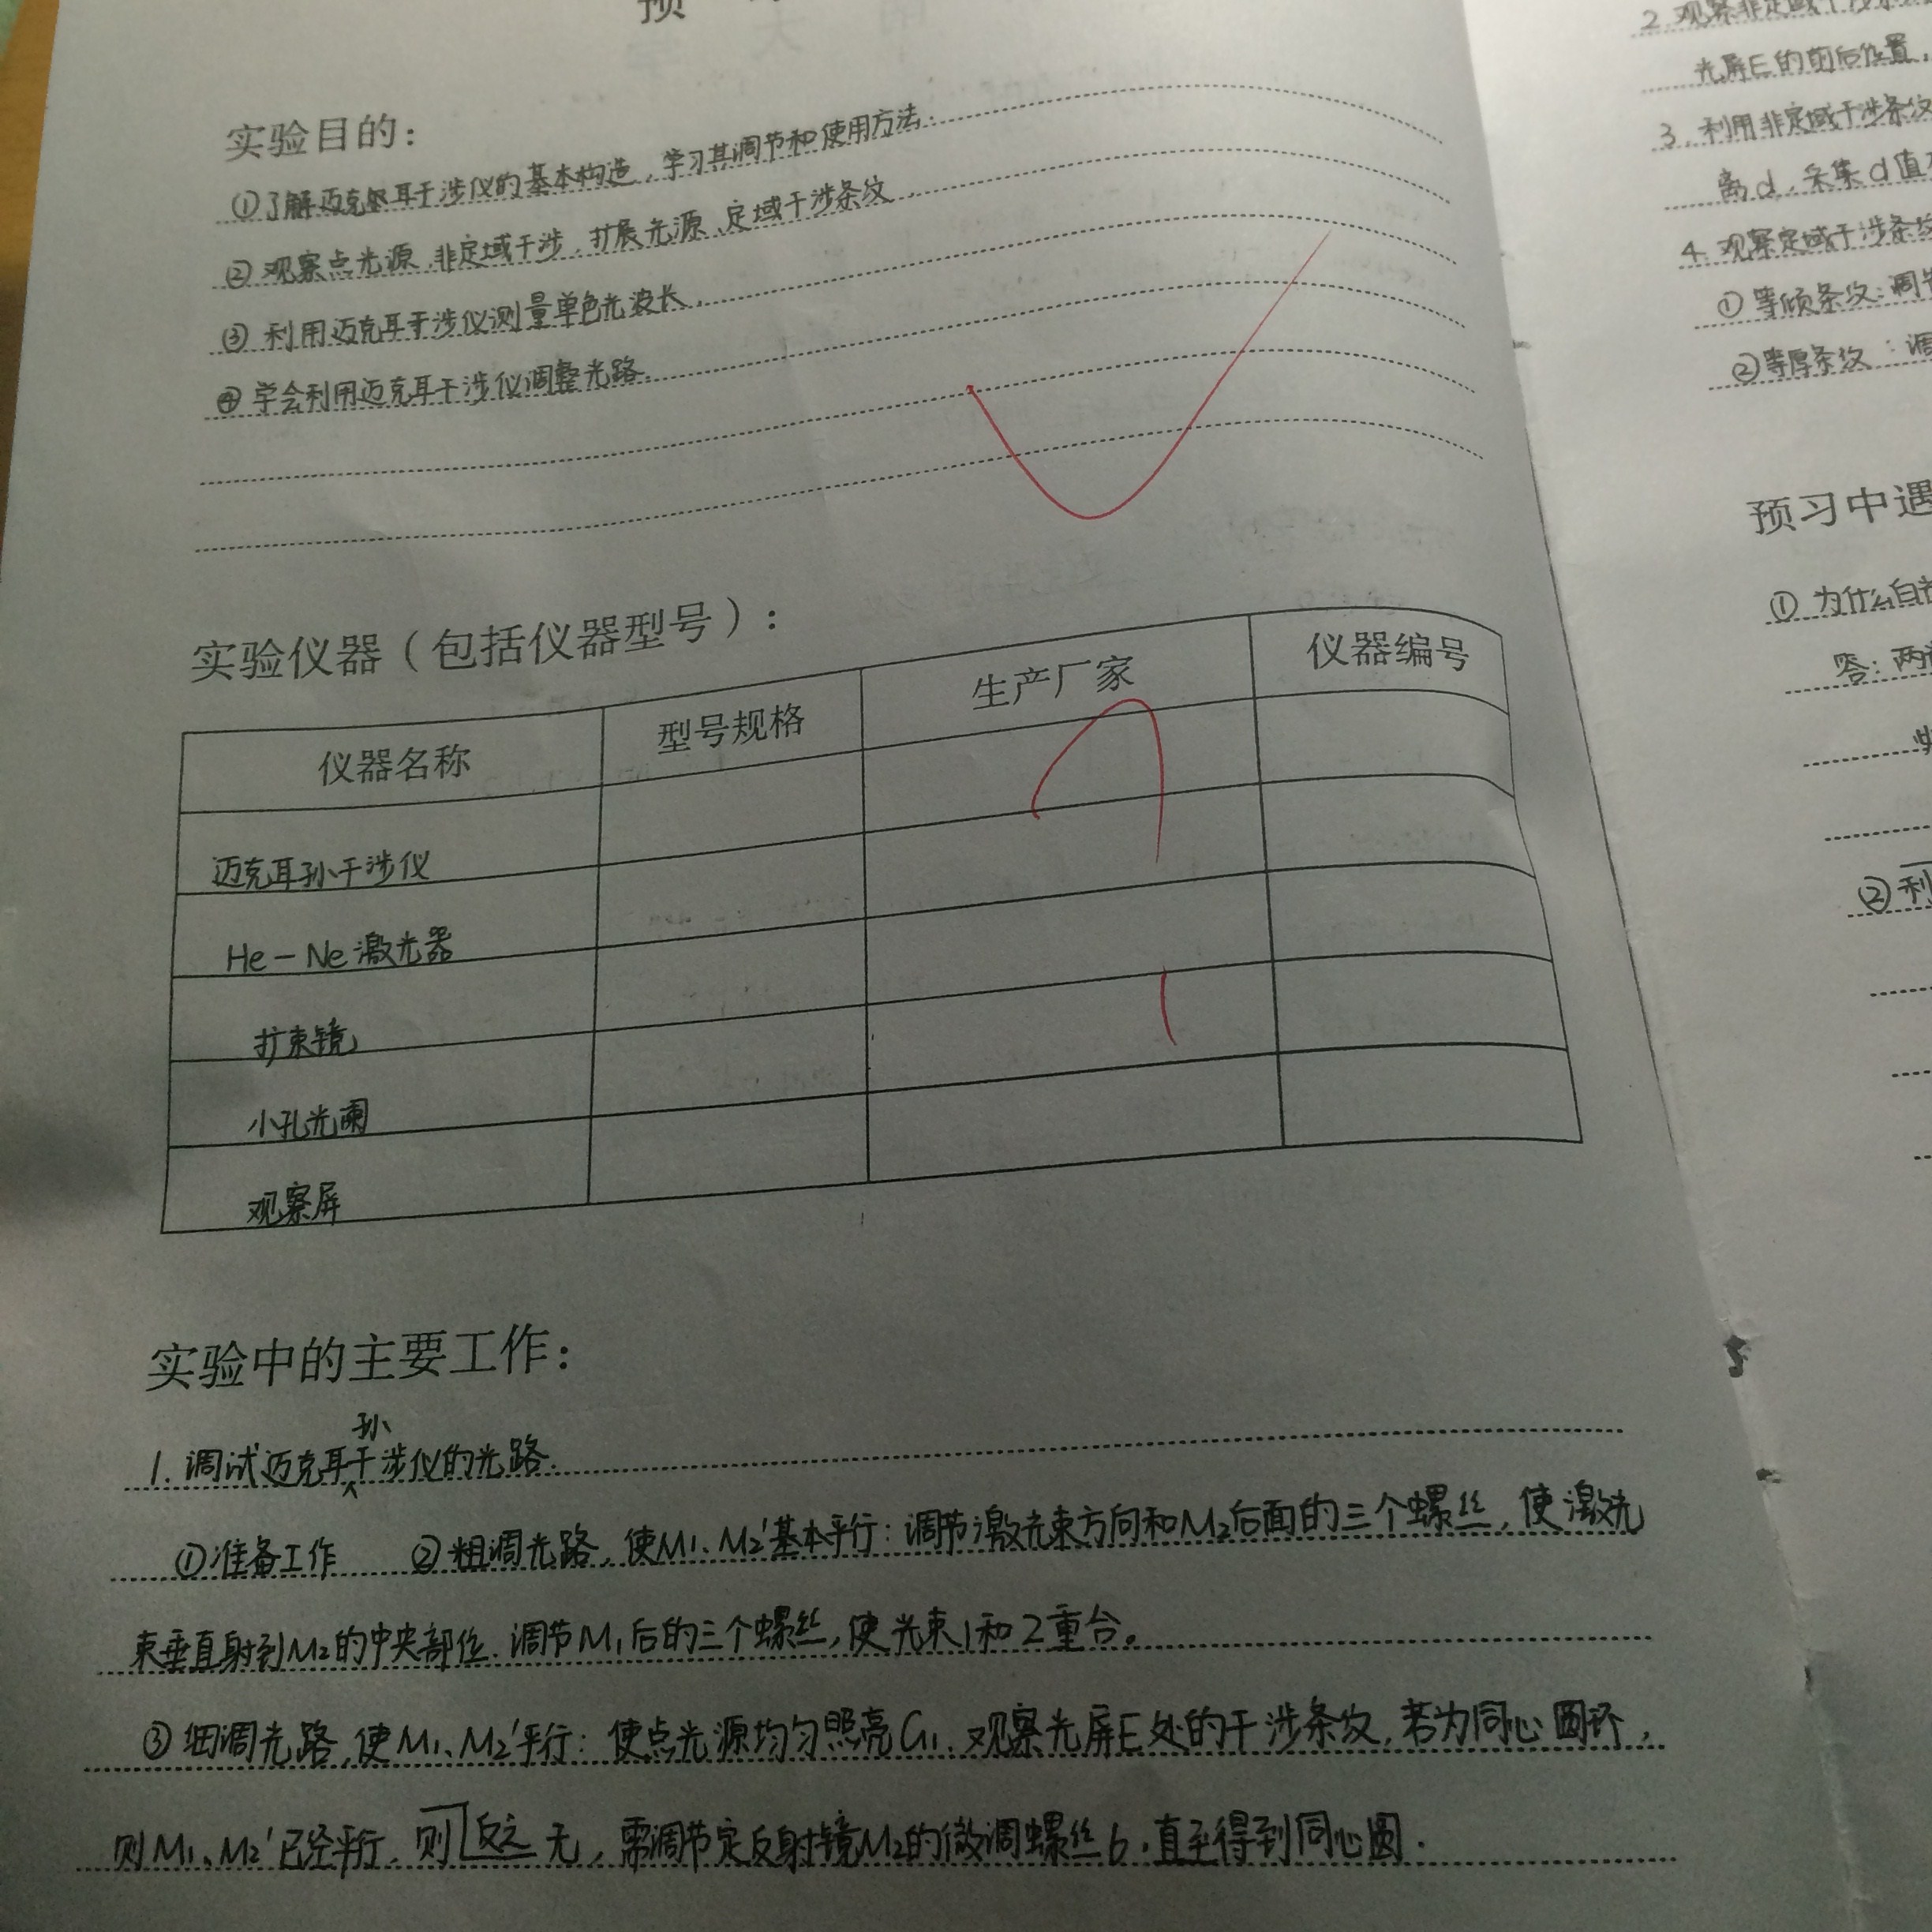 预
实验目的：
①了解迈克尔耳干涉仪的基本构造，学习其调节和使用方法.
② 观察点光源、非定域干涉，扩展光源、定域干涉条纹
③ 利用迈克耳干涉仪测量单色光波长.
④ 学会利用迈克耳干涉仪调整光路.
实验仪器（包括仪器型号）：
仪器名称 型号规格 生产厂家 仪器编号
迈克耳孙干涉仪
He-Ne激光器
扩束镜
小孔光阑
观察屏
实验中的主要工作：
孙
1. 调试迈克耳干涉仪的光路.
①准备工作 ②粗调光路，使M1、M2'基本平行：调节激光束方向和M2后面的三个螺丝，使激光
束垂直射到M2的中央部位. 调节M1后的三个螺丝，使光束1和2重合。
③ 细调光路，使M1、M2'平行：使点光源均匀照亮G1. 观察光屏E处的干涉条纹，若为同心圆环，
则M1、M2'已经平行. 则 反之 无，需调节定反射镜M2的微调螺丝b，直至得到同心圆.
2. 观察非定域干涉条
光屏E的前后位置，
3. 利用非定域干涉条纹
离d，采集d值
4. 观察定域干涉条纹
① 等倾条纹：调节
②等厚条纹：调
预习中遇
① 为什么白
答：两
② 利